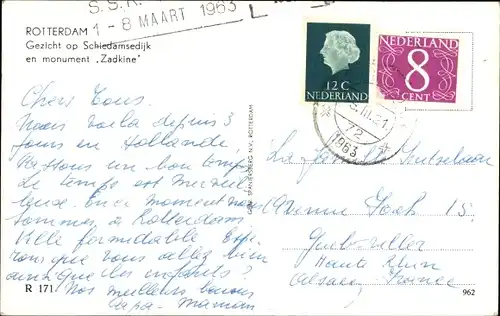 S.S.R.
1-8 MAART 1963
ROTTERDAM
Gezicht op Schiedamsedijk
en monument „Zadkine"
12 C
NEDERLAND
NEDERLAND
8
CENT
1963
Chers Tous.
Nous voila depuis 3
jours en Hollande,
Passons un bon temps
le temps est merveil
leux. En ce moment nous
sommes à Rotterdam
Ville formidable Espe
rons que vous allez bien
ainsi que les enfants?
Nos meilleurs baisers
Papa - Maman
La famille
Avenue Foch 15.
Guebwiller
Haute Rhin
Alsace, France
SPANJERSBERG N.V., ROTTERDAM
R 171
962